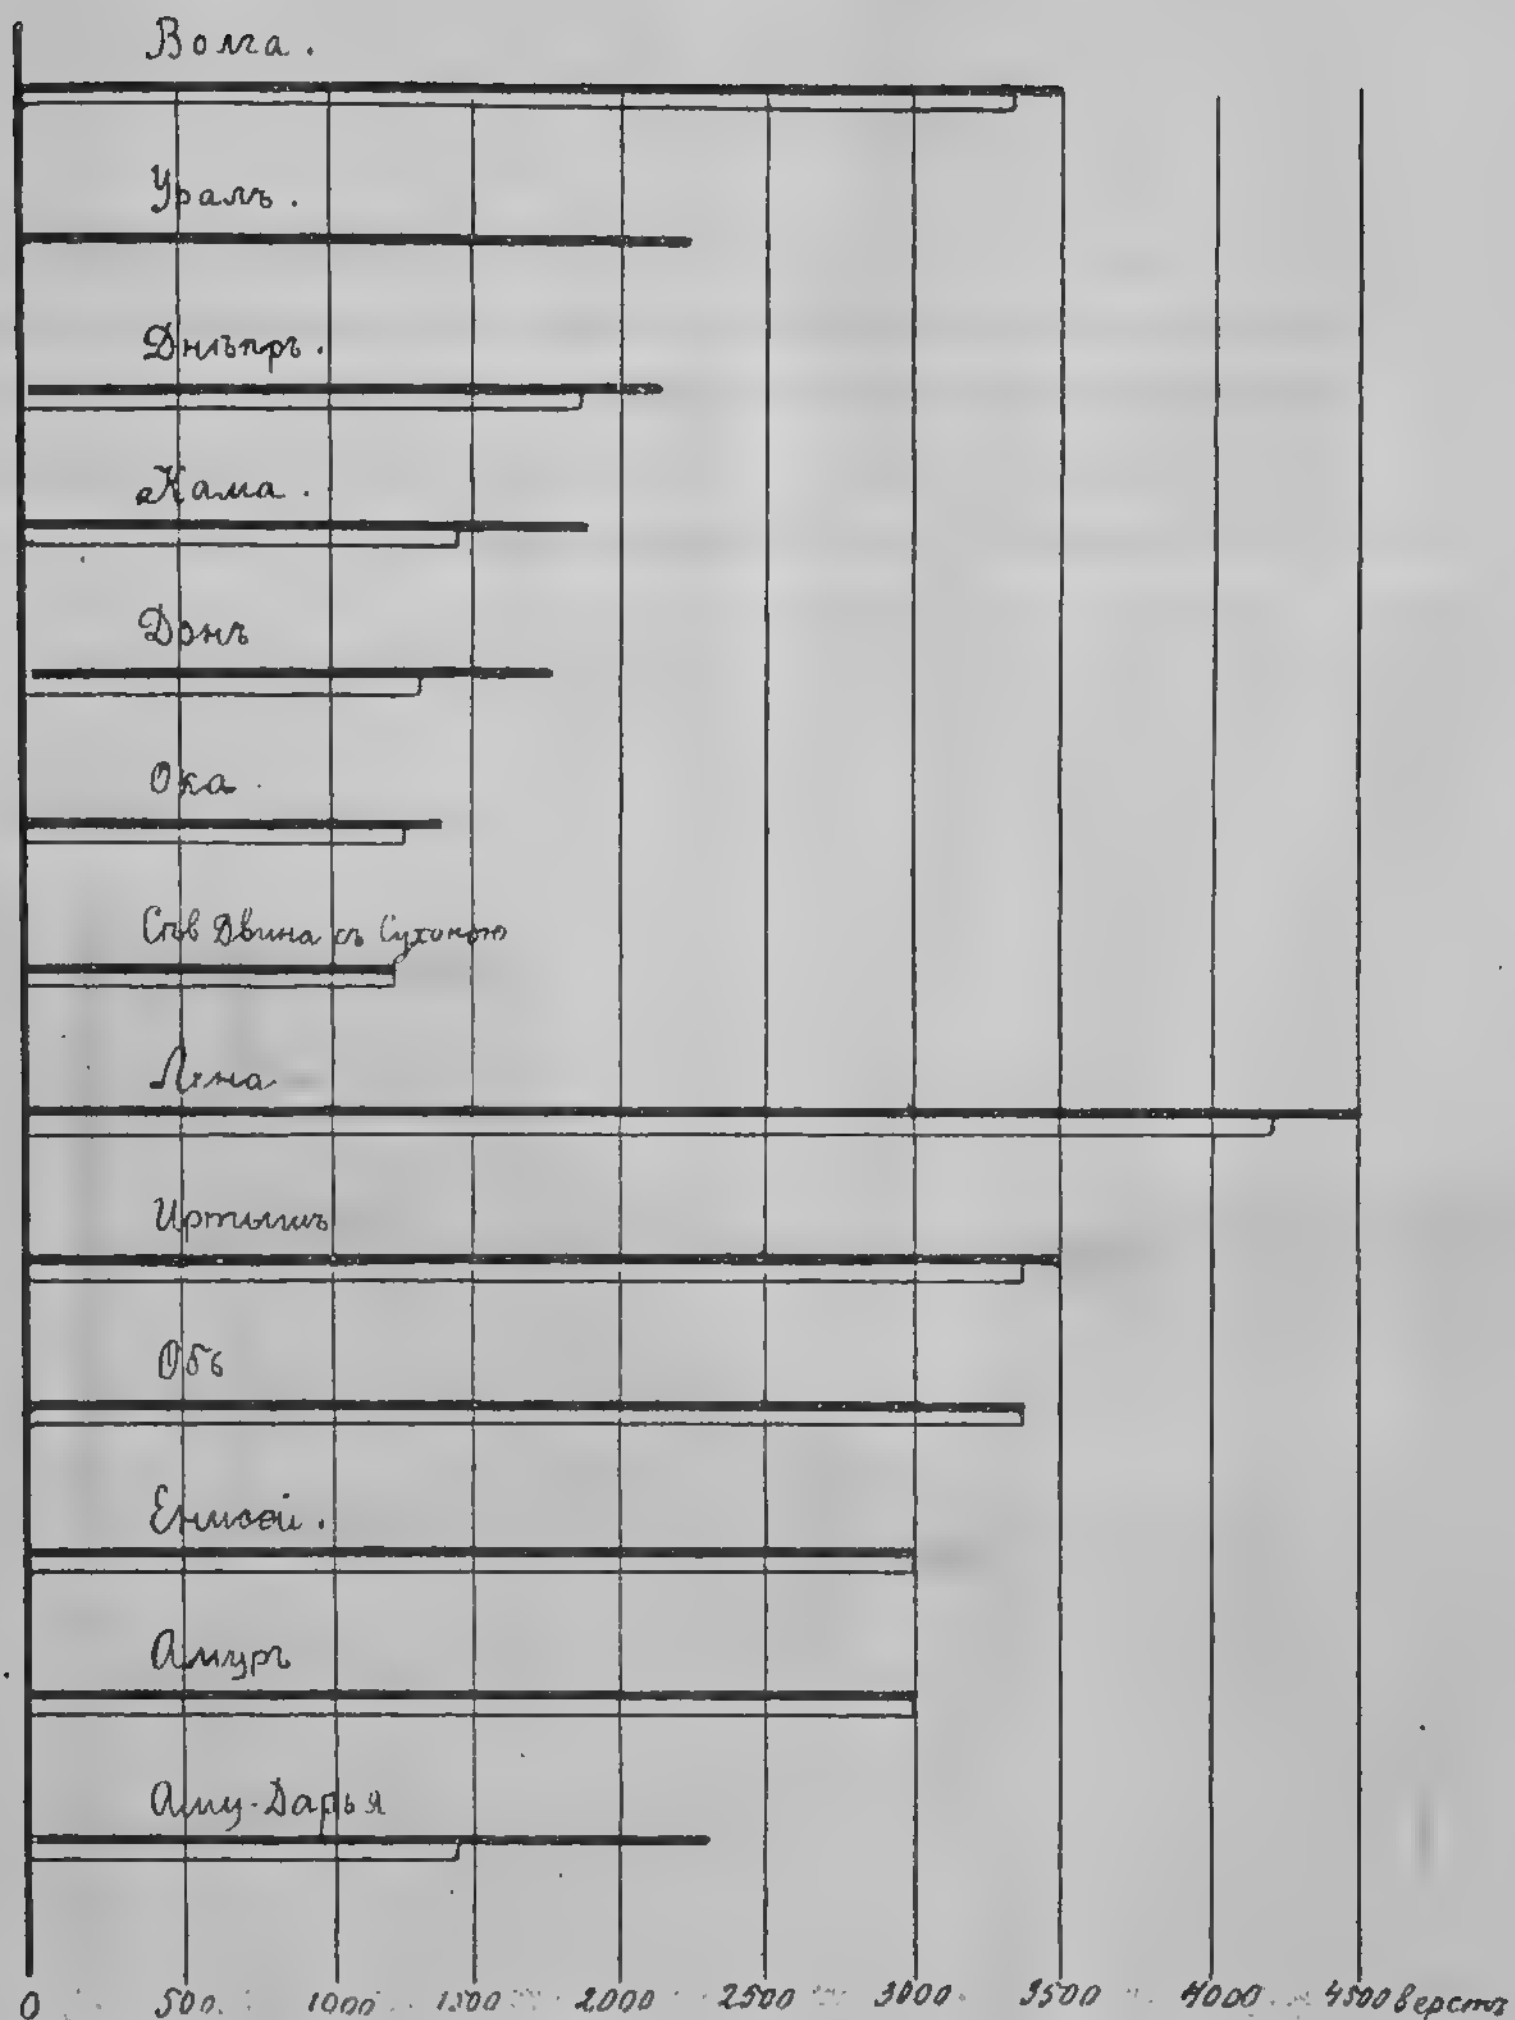 Волга.
Уралъ.
Днѣпръ.
Кама.
Донъ
Ока.
Сѣв Двина съ Сухоною
Лена
Иртышъ
Обь
Енисей.
Амуръ
Аму-Дарья
0 500 1000 1500 2000 2500 3000 3500 4000 4500 верстъ